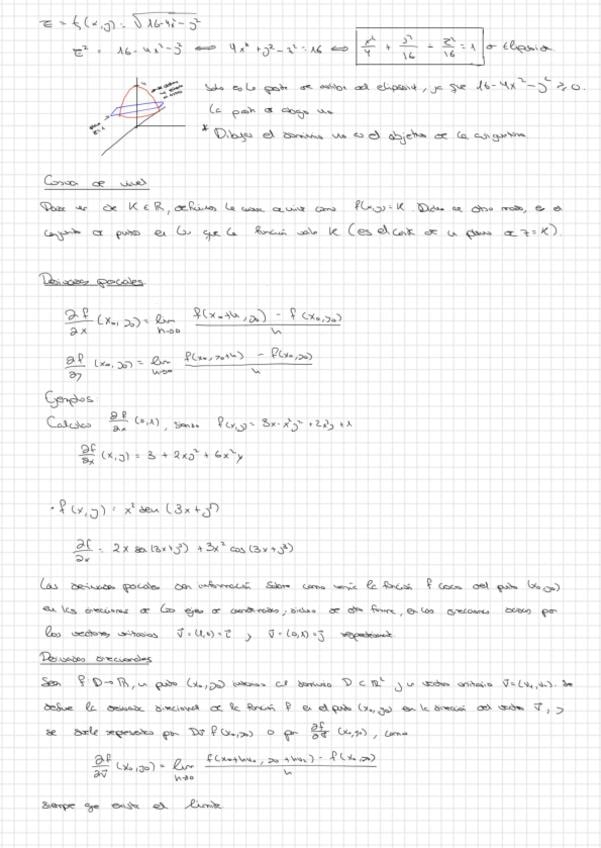 z = f(x,y) = √(16-4x²-y²)
z² = 16-4x²-y² ⟺ 4x²+y²-z²=16 ⟺ x²/4 + y²/16 + z²/16 = 1 → Elipsoide
Solo es la parte de arriba del elipsoide, ya que 16-4x²-y² ≥ 0.
La parte de abajo no
* Dibujar el dominio no es el objetivo de la asignatura
Curva de nivel
de K ∈ ℝ, definimos la curva de nivel como f(x,y)=K. Dicho de otro modo, es el
conjunto de puntos en los que la función vale K (es el corte de un plano de z=K).
Derivadas parciales
∂f/∂x (x₀,y₀) = lim h→0 (f(x₀+h,y₀) - f(x₀,y₀))/h
∂f/∂y (x₀,y₀) = lim h→0 (f(x₀,y₀+h) - f(x₀,y₀))/h
Ejemplos
Calcula ∂f/∂x (0,1), siendo f(x,y) = 3x-x²y²+2x³y+1
∂f/∂x (x,y) = 3 + 2xy² + 6x²y
· f(x,y) = x² sen(3x+y³)
∂f/∂x = 2x sen(3x+y³) + 3x² cos(3x+y³)
Las derivadas parciales dan información sobre como varía la función f cerca del punto (x₀,y₀)
en las direcciones de los ejes de coordenadas, dicho de otra forma, en las direcciones dadas por
los vectores unitarios v⃗=(1,0)=i⃗ y v⃗=(0,1)=j⃗ respectivamente.
Derivadas direccionales
Sea f:D→ℝ, un punto (x₀,y₀) interno al dominio D⊂ℝ² y un vector unitario v⃗=(v₁,v₂). Se
define la derivada direccional de la función f en el punto (x₀,y₀) en la dirección del vector v⃗, y
se suele representar por Dv⃗ f(x₀,y₀) o por ∂f/∂v⃗ (x₀,y₀), como
∂f/∂v⃗ (x₀,y₀) = lim h→0 (f(x₀+hv₁, y₀+hv₂) - f(x₀,y₀))/h
siempre que exista el límite.